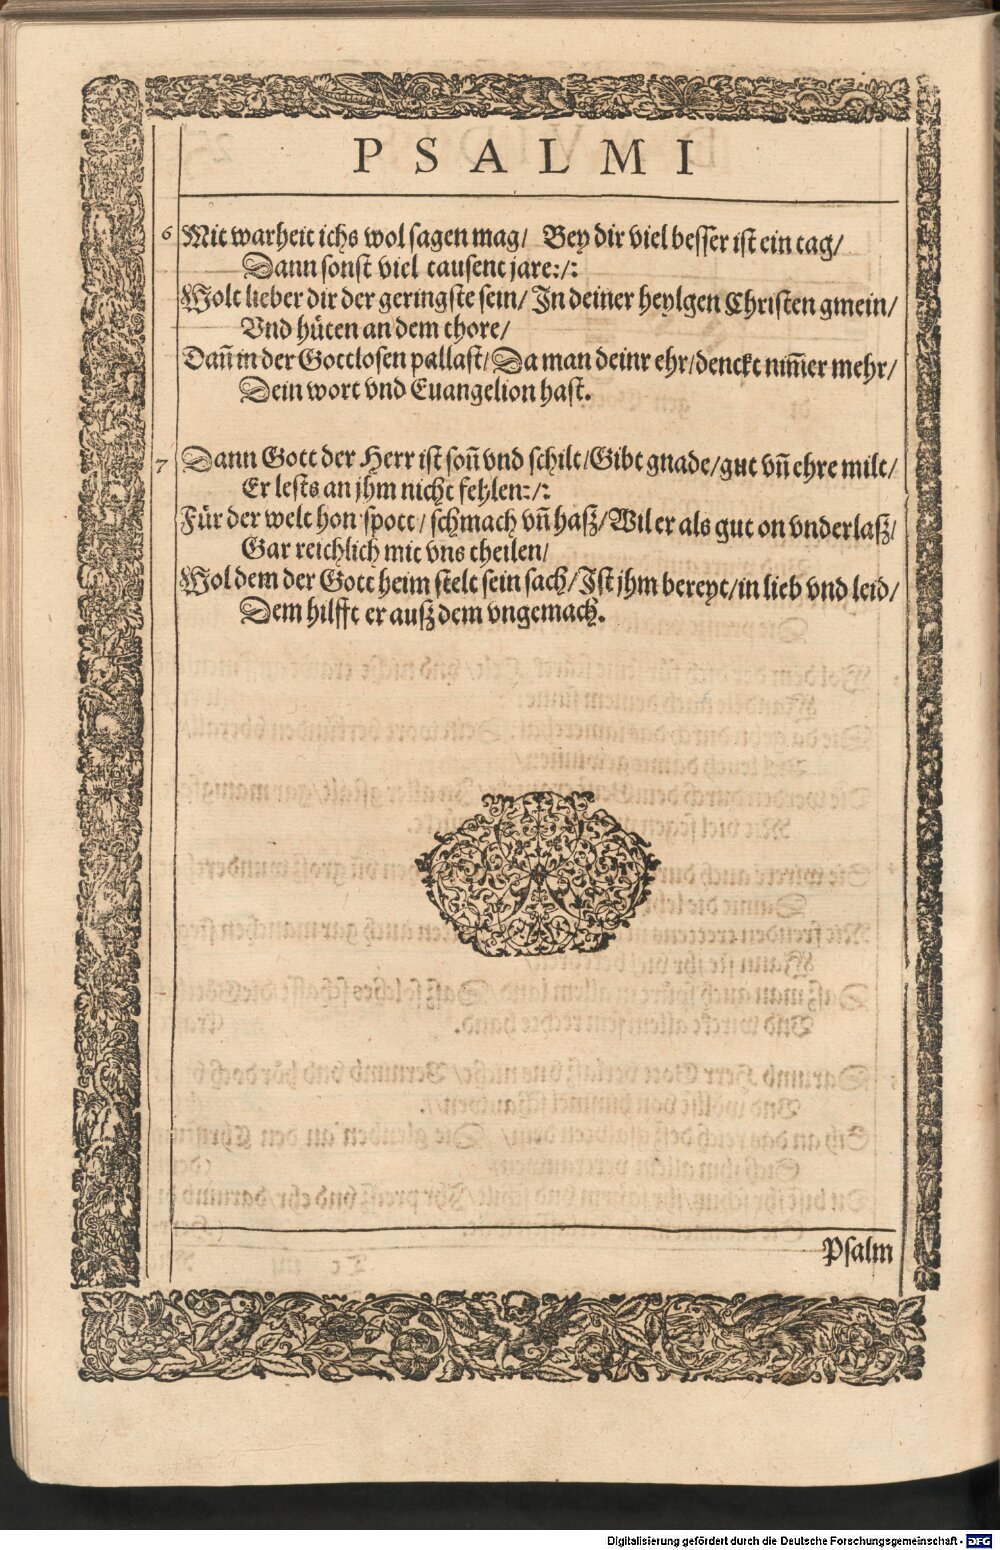 PSALMI
6 Mit warheit ichs wol sagen mag/ Bey dir viel besser ist ein tag/
Dann sonst viel tausent jare:/:
Wolt lieber dir der geringste sein/ In deiner heylgen Christen gmein/
Vnd hüten an dem thore/
Dañ in der Gottlosen pallast/ Da man deinr ehr/denckt nim̃er mehr/
Dein wort vnd Euangelion hast.
7 Dann Gott der Herr ist soñ vnd schilt/Gibt gnade/gut vñ ehre milt/
Er lests an jhm nicht fehlen:/:
Für der welt hon spott/ schmach vñ hasz/Wil er als gut on vnderlasz/
Gar reichlich mit vns theilen/
Wol dem der Gott heim stelt sein sach/Ist jhm bereyt/in lieb vnd leid/
Dem hilfft er ausz dem vngemach.
Psalm
Digitalisierung gefördert durch die Deutsche Forschungsgemeinschaft - DFG